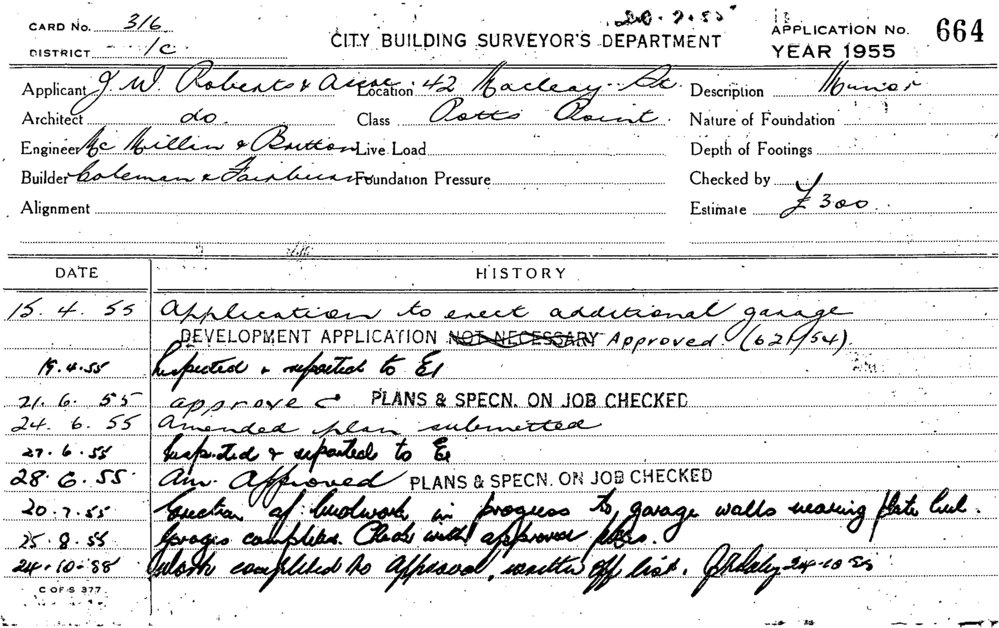 20-7-55
CARD No. 316
CITY BUILDING SURVEYOR'S DEPARTMENT
APPLICATION No. 664
DISTRICT 1c
YEAR 1955
Applicant J. W. Roberts & Assoc. Location 42 Macleay St Description Minor
Architect do Class Potts Point. Nature of Foundation
Engineer Mc Millan & Britton Live Load Depth of Footings
Builder Coleman & Fairburn Foundation Pressure Checked by
Alignment Estimate £300
DATE HISTORY
15. 4. 55 Application to erect additional garage
DEVELOPMENT APPLICATION NOT NECESSARY Approved (621/54).
19.4.55 Inspected & reported to
21. 6. 55 approved PLANS & SPECN. ON JOB CHECKED
24. 6. 55 Amended plan submitted
27.6.55 Inspected & reported to
28.6.55 Am. Approved PLANS & SPECN. ON JOB CHECKED
20.7.55 Erection of brickwork in progress to garage walls nearing plate level.
25.8.55 Garages completed. Check with approved plans.
24-10-55 Work completed to Approval, written off list. 24-10-55
C OF S 377